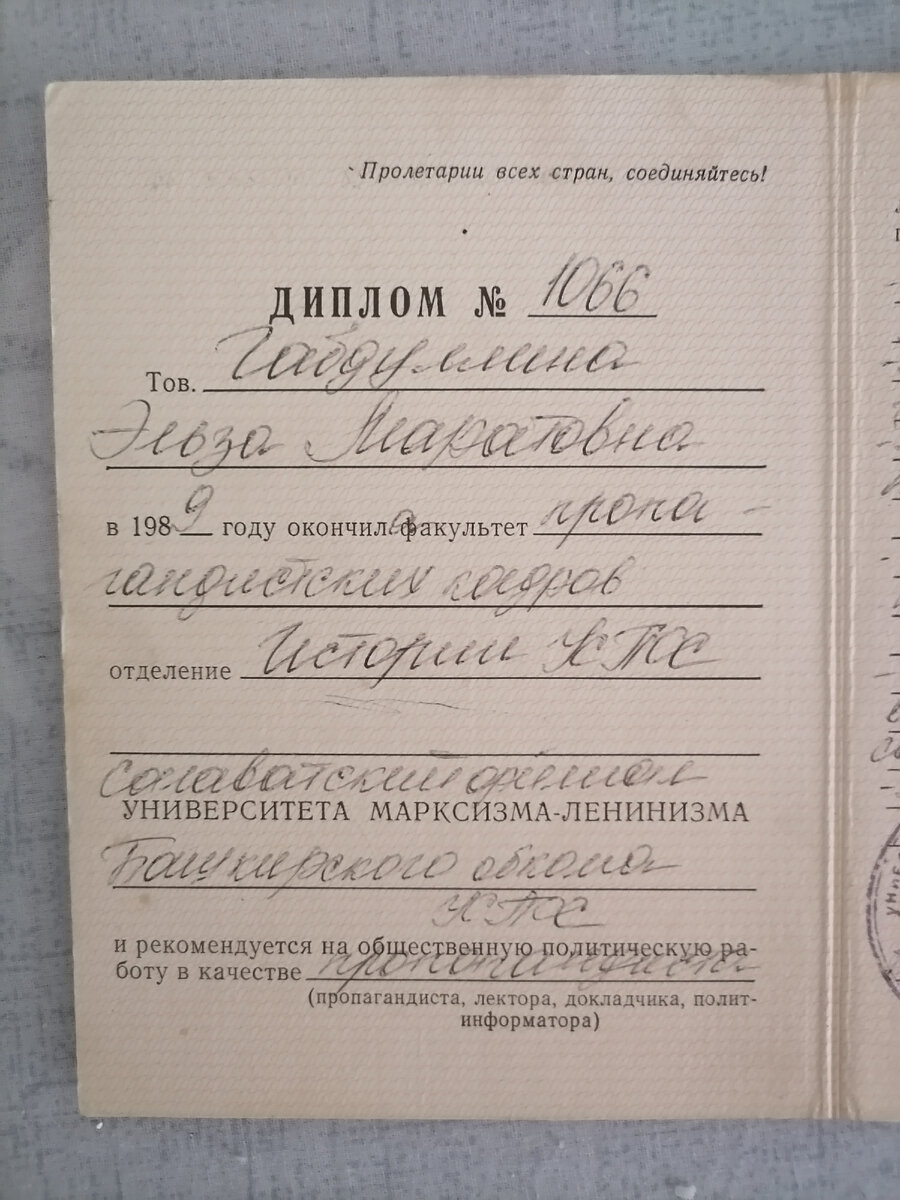 Пролетарии всех стран, соединяйтесь!
ДИПЛОМ № 1066
Тов. Габдуллина
Эльза Маратовна
в 1989 году окончила факультет пропа-
гандистских кадров
отделение Истории КПСС
Салаватский филиал
УНИВЕРСИТЕТА МАРКСИЗМА-ЛЕНИНИЗМА
Башкирского обкома
КПСС
и рекомендуется на общественную политическую ра-
боту в качестве пропагандиста
(пропагандиста, лектора, докладчика, полит-
информатора)